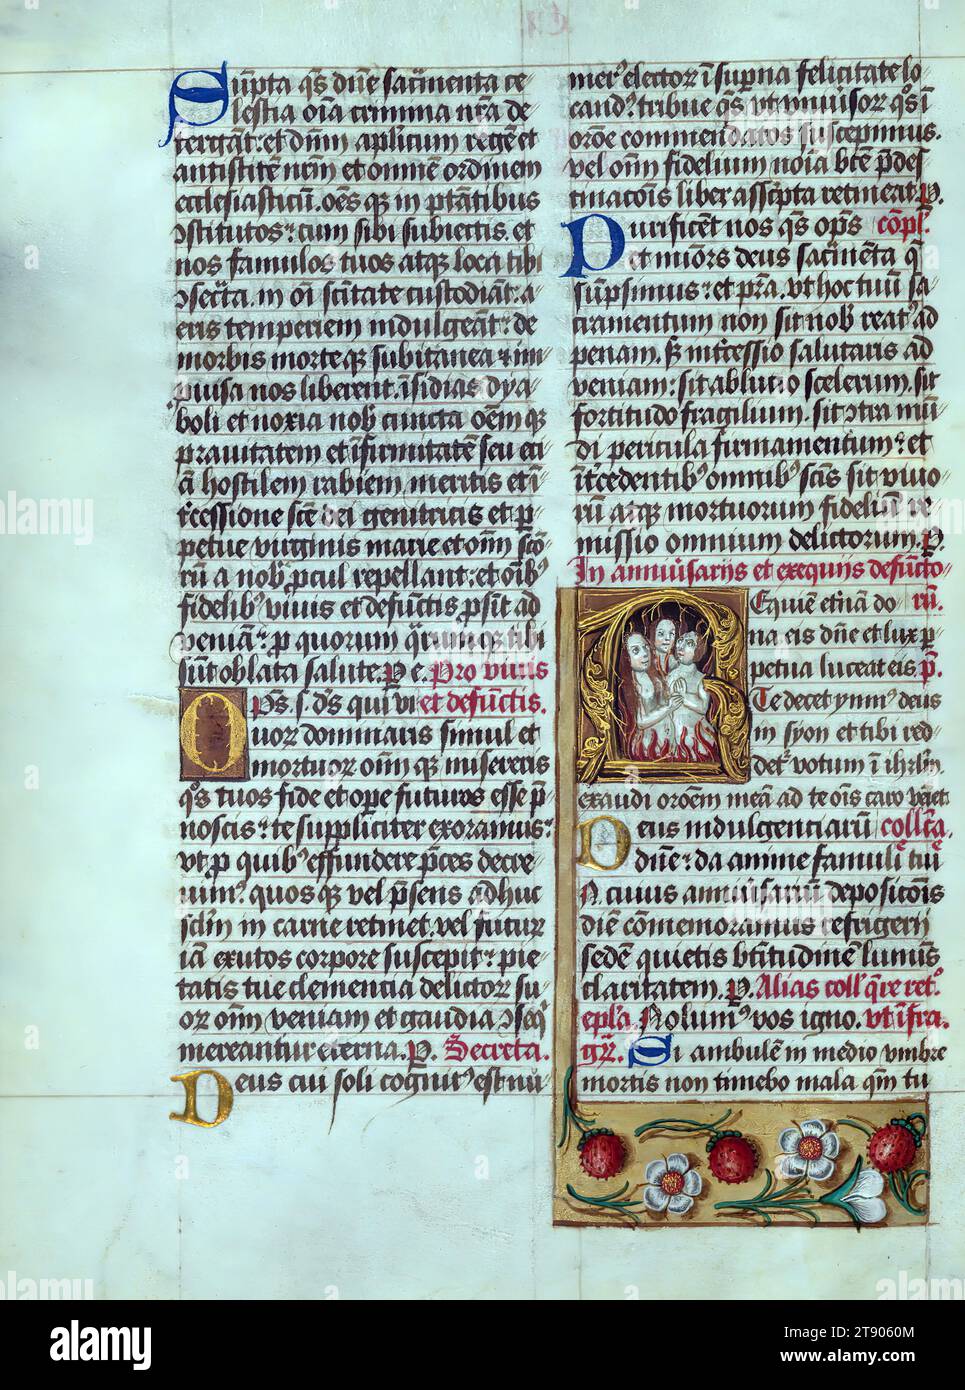 Sūpta q̄s dn̄e sac̄menta ce
lestia oīa crimina nr̄a de
tergāt: et dn̄m ap̄licum regē et
antistitē nr̄m et omnē ordinem
ecclesiasticū. oēs q̄ in ptātibus
ꝯstitutos: cum sibi subiectis. et
nos famulos tuos atq̄ loca tibi
ꝯsec̄ta. in oī sc̄itate custodiāt: a
eris temperiem indulgeāt: de
morbis morteq̄ subitanea: et im
puisa nos liberent. īsidias dya
boli et noxia nob̄ cuncta oēm q̄
prauitatem et ifirmitatē seu eti
ā hostilem rabiem meritis et ī
t̄cessione sc̄e dei genitricis et p̱
petue virginis marie et om̄ sc̄o
rū a nob̄ p̱cul repellant: et oīb9
fidelib9 viuis et defūctis p̄sit ad
veniā: p̱ quorum q̄rumq̄ tibi
sūt oblata salute. P̱ e. Pro viuis
OP̄s. s. d̄s qui vi et defūctis.
uoꝝ dominaris simul et
mortuoꝝ om̄ q̄ misereris
q̄s tuos fide et ope futuros esse p̄
noscis: te suppliciter exoramus:
vt p̱ quib9 effundere p̄ces decre
uim9. quos q̄ vel p̄sens adhuc
sc̄lm in carne retinet. vel futur
iā exutos corpore suscepit: pie
tatis tue clementia delictoꝝ su
oꝝ om̄ veniam et gaudia ꝯseq̄
mereantur eterna. P̱. Secreta.
Deus cui soli cognit9 est nū
mer9 electoꝝ ī supna felicitate lo
cand9. tribue q̄s vt vniuisoꝝ q̄s ī
or̄one commendatos suscepimus.
vel om̄ fidelium noīa b̄te p̄des
tinacōīs liber asscp̄ta retineat. P̱.
Purificent nos q̄s op̄s cōpl.
et miōrs deus sac̄mēta q̄
sūpsimus: et pr̄a. vt hoc tuū sa
cramentum non sit nob̄ reat9 ad
penam. s̄ intc̄essio salutaris ad
veniam: sit ablucio scelerum. sit
fortitudo fragilium. sit ꝯtra mū
di pericula firmamentum: et
īt̄cedentib9 omnib9 sc̄is sit viuo
rū atque mortuorum fideliū re
missio omnium delictorum. P̱.
In anniūsariis et exequiis defūcto
REquiē et̄nā do rū.
na eis dn̄e et lux p̱
petua luceat eis p̄.
Te decet ymn9 deus
in syon et tibi red
det9 votum ī ihrlm̄.
exaudi or̄oēm meā ad te oīs caro veīet
Deus indulgenciarū collc̄ta.
dn̄e: da anime famuli tui
N. cuius anniūsariū deposicōīs
diē cōmemoramus refrigerii
sedē quietis b̄titudinē lumīs
claritatem. P̱. Alias coll'q̄re ret9.
epl'a. Nolum9 vos igno. vt īfra.
gr̄. Si ambulem in medio vmbre
mortis non timebo mala qm̄ tu
alamy
Image ID: 2T9060M
www.alamy.com